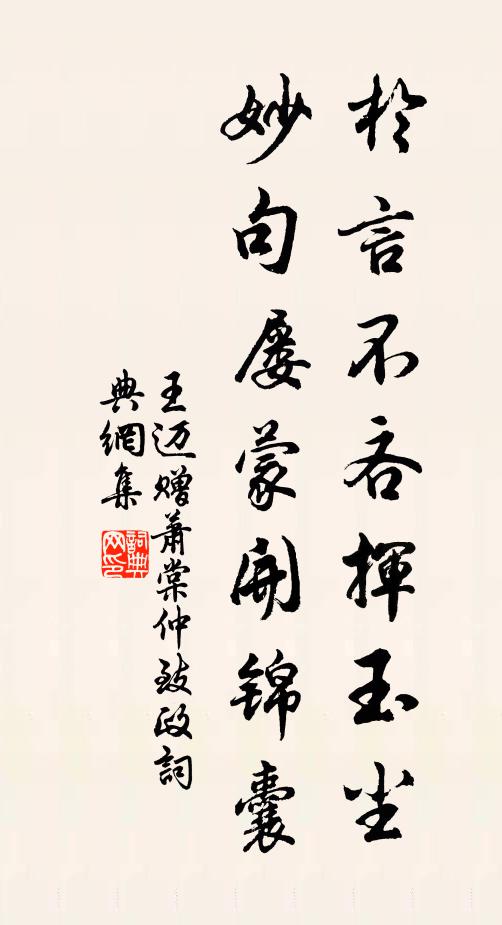 於言不吝揮玉尘
妙句屡蒙開锦囊
王迈赠蕭棠仲致政詞
典網集
詞典
网印